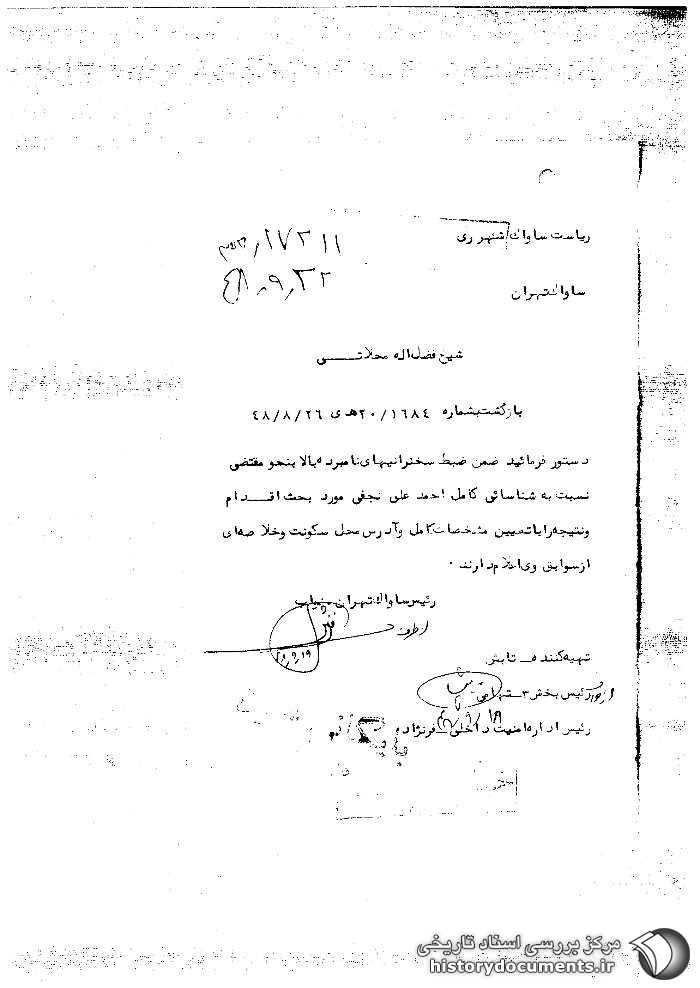 ریاست ساواک شهر ری
ساواک تهران
۱۷۳۱۱
شیخ فضل اله محلاتــی
بازگشت بشماره ۲۰/۱۶۸۴ ه‍ ی ۴۸/۸/۲۶
دستور فرمائید ضمن ضبط سخنرانیهای نامبرده بالا بنحو مقتضی
نسبت به شناسائی کامل احمد علی نجفی مورد بحث اقــدام
و نتیجه را با تعیین مشخصات کامل و آدرس محل سکونت و خلاصه ای
از سوابق وی اعلام دارند .
رئیس ساواک تهران
از طرف
تهیه کننده
رئیس بخش ۳ـ
رئیس اداره امنیت داخلی ـ فرنژاد
مرکز بررسی اسناد تاریخی
historydocuments.ir